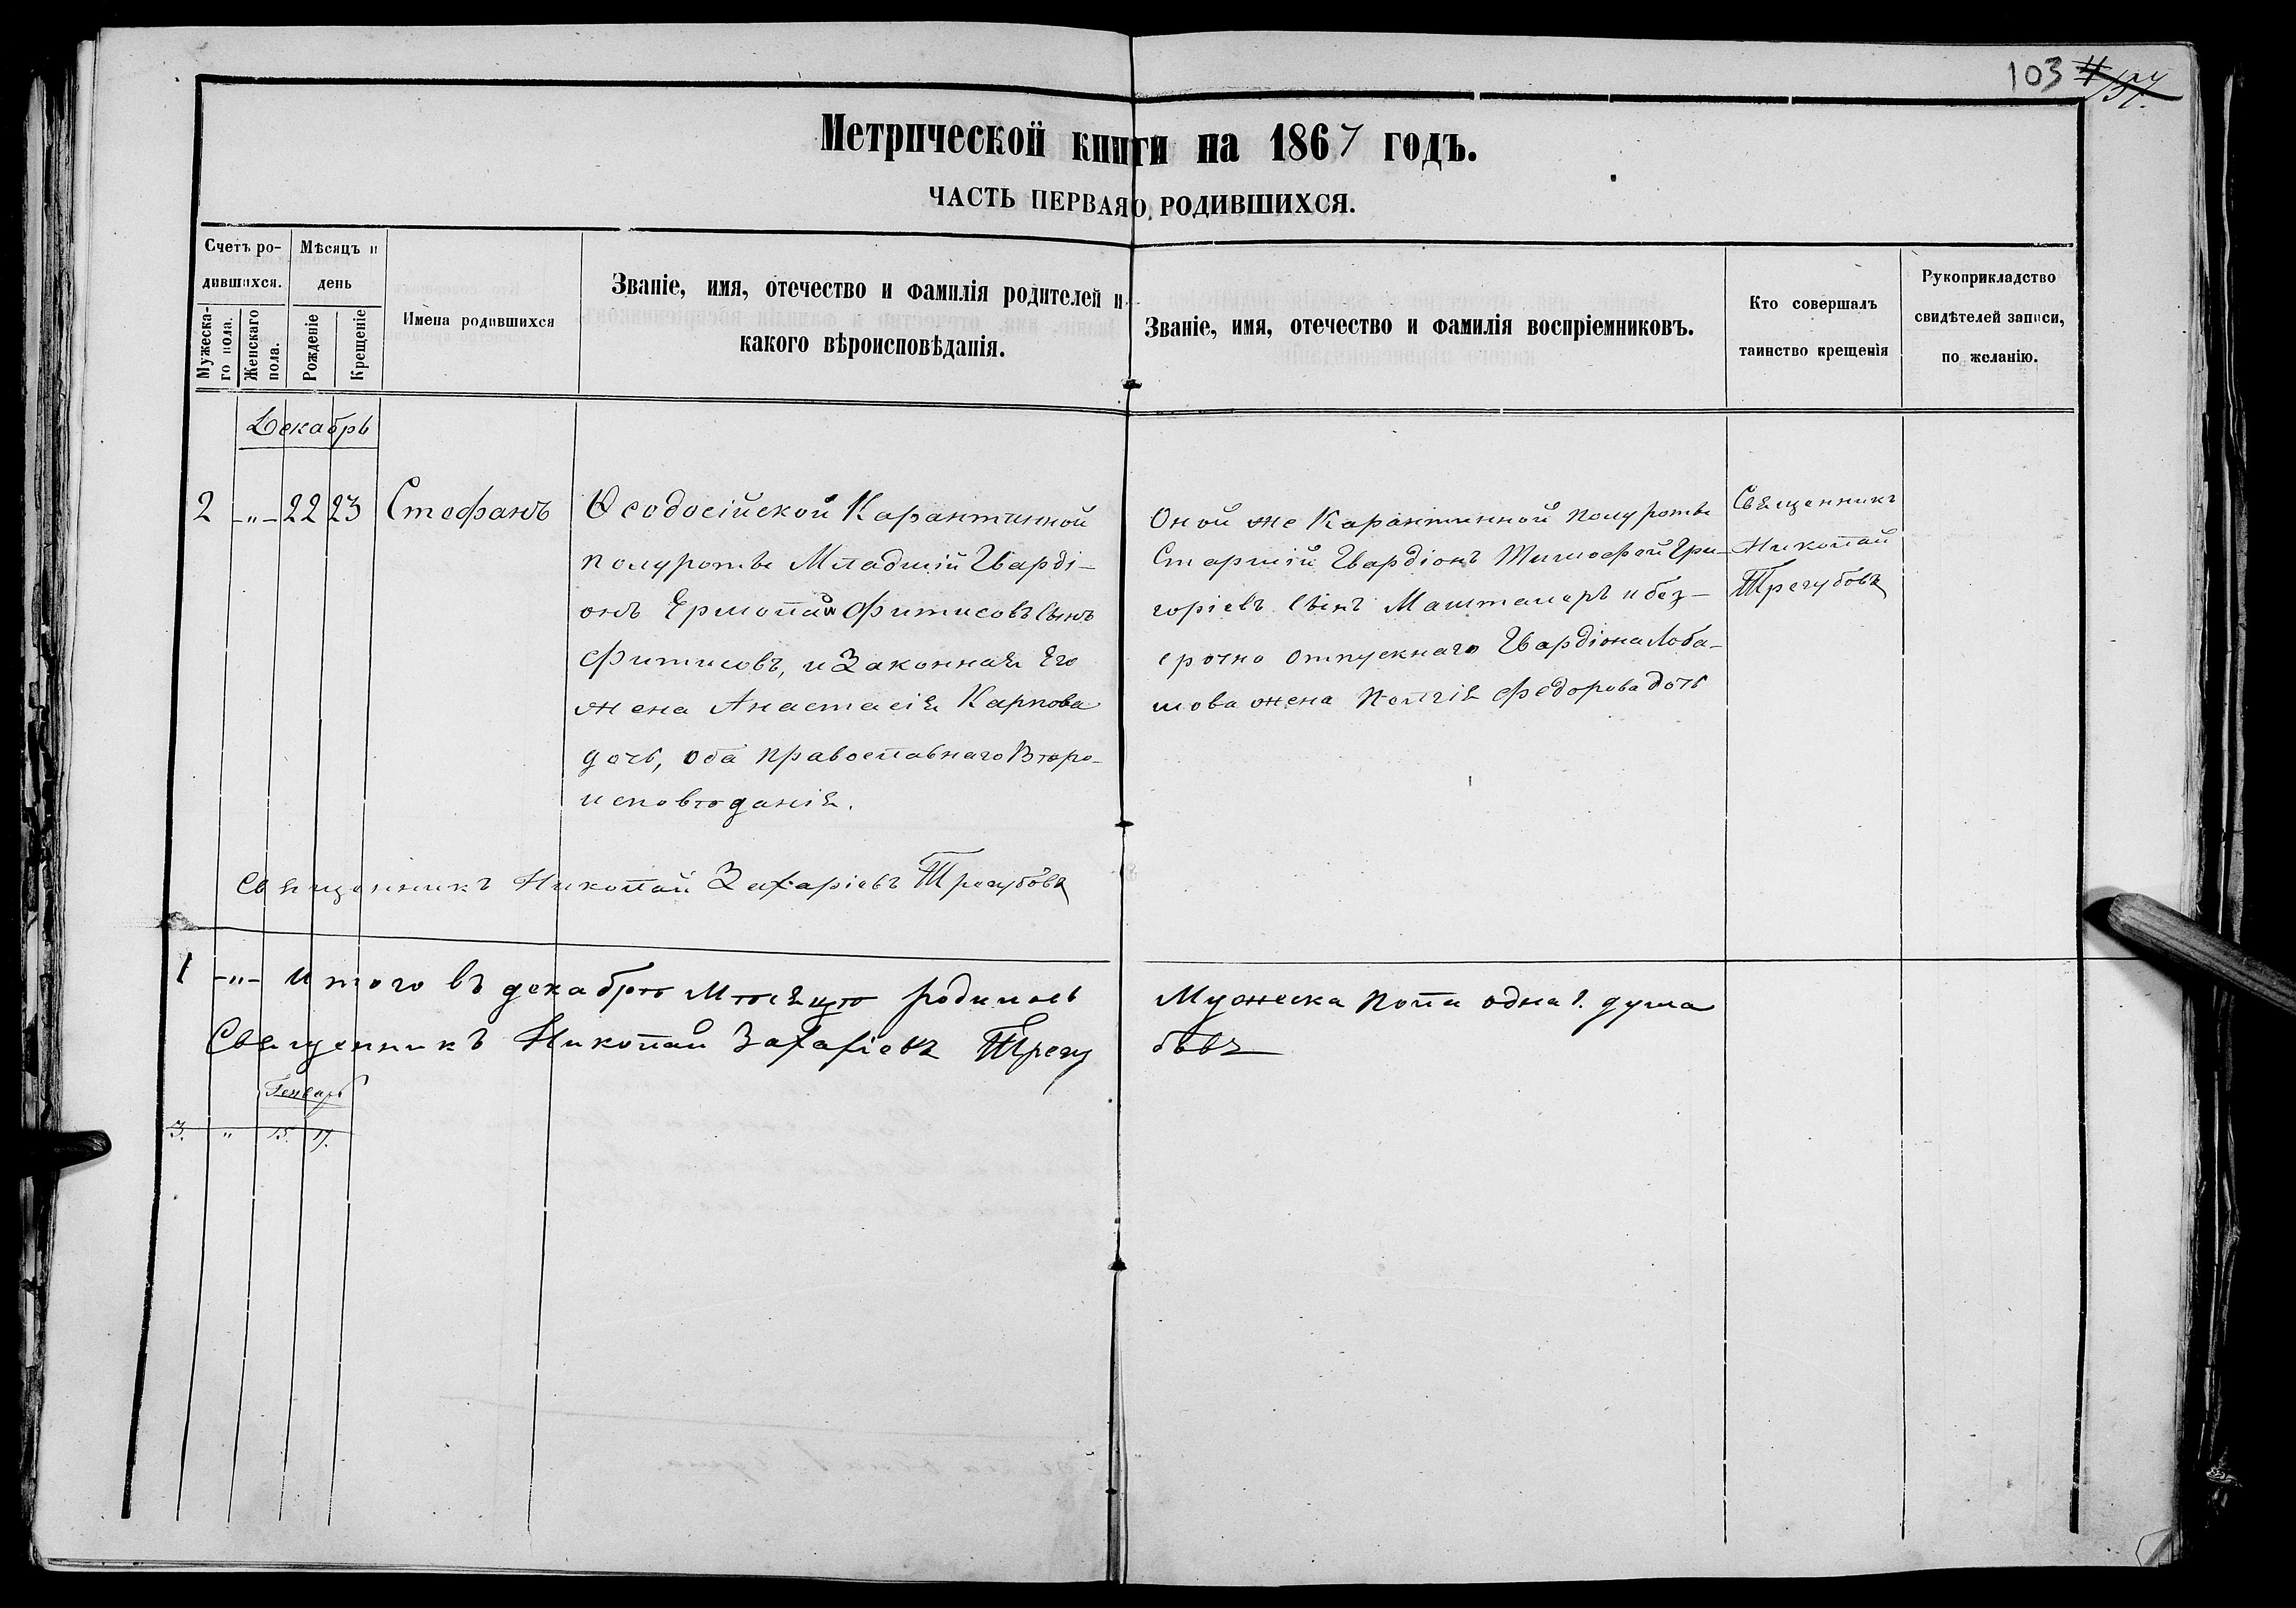 103
Метрической книги на 1867 годъ.
ЧАСТЬ ПЕРВАЯ О РОДИВШИХСЯ.
Счетъ ро-
дившихся.
Мужеска-
го пола.
Женскаго
пола.
Мѣсяцъ и
день
Рожденіе
Крещеніе
Имена родившихся
Званіе, имя, отечество и фамилія родителей и
какого вѣроисповѣданія.
Званіе, имя, отечество и фамилія воспріемниковъ.
Кто совершалъ
таинство крещенія
Рукоприкладство
свидѣтелей записи,
по желанію.
Декабрь
2 -"- 22 23 Стефанъ
Ѳеодосійской Карантинной
полуроты Младшій Гварді-
онъ Ермолай Фитисовъ сынъ
Фитисовъ, и Законная Его
жена Анастасія Карпова
дочь, оба православнаго Вѣро-
исповѣданія.
Оной же Карантинной полуроты
Старшій Гвардіонъ Тимофей Гри-
горіевъ сынъ и без-
срочно отпускнаго Гвардіона Лоба-
шова жена Федорова дочь
Священникъ
Николай
Трегубовъ
Священникъ Николай Захаріевъ Трегубовъ
1 -"- Итого въ декабрѣ Мѣсяцѣ родилось Мужеска пола одна 1. душа
Священникъ Николай Захаріевъ Трегубовъ
Генварь
3. " 15. 17.